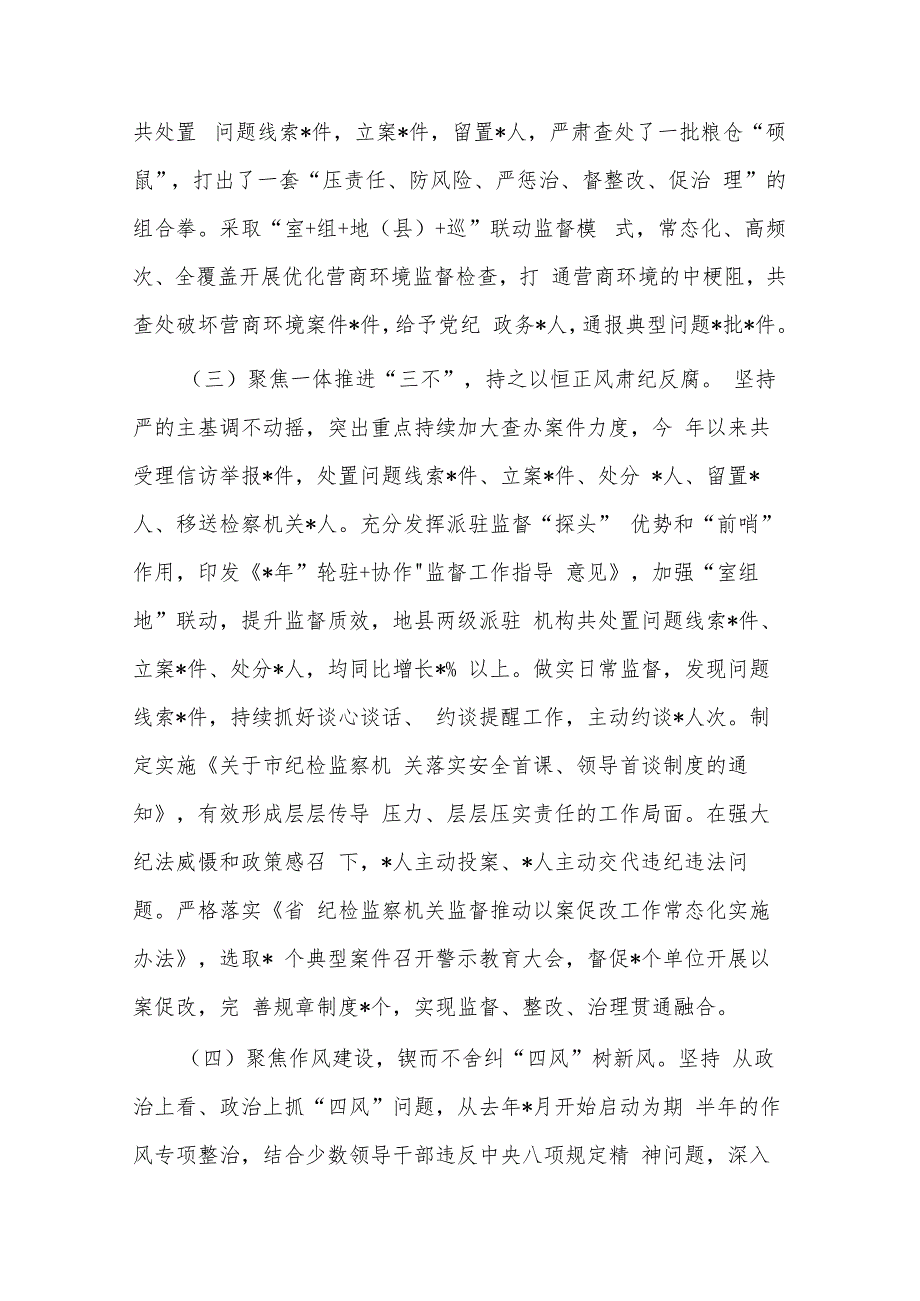 共处置 问题线索*件，立案*件，留置*人，严肃查处了一批粮仓“硕
鼠”，打出了一套“压责任、防风险、严惩治、督整改、促治 理”的
组合拳。采取“室+组+地（县）+巡”联动监督模 式，常态化、高频
次、全覆盖开展优化营商环境监督检查，打 通营商环境的中梗阻，共
查处破坏营商环境案件*件，给予党纪 政务*人，通报典型问题*批*件。
（三）聚焦一体推进“三不”，持之以恒正风肃纪反腐。 坚持
严的主基调不动摇，突出重点持续加大查办案件力度，今 年以来共
受理信访举报*件，处置问题线索*件、立案*件、处分 *人、留置*
人、移送检察机关*人。充分发挥派驻监督“探头” 优势和“前哨”
作用，印发《*年”轮驻+协作"监督工作指导 意见》，加强“室组
地”联动，提升监督质效，地县两级派驻 机构共处置问题线索*件、
立案*件、处分*人，均同比增长*% 以上。做实日常监督，发现问题
线索*件，持续抓好谈心谈话、 约谈提醒工作，主动约谈*人次。制
定实施《关于市纪检监察机 关落实安全首课、领导首谈制度的通
知》，有效形成层层传导 压力、层层压实责任的工作局面。在强大
纪法威慑和政策感召 下，*人主动投案、*人主动交代违纪违法问
题。严格落实《省 纪检监察机关监督推动以案促改工作常态化实施
办法》，选取* 个典型案件召开警示教育大会，督促*个单位开展以
案促改，完 善规章制度*个，实现监督、整改、治理贯通融合。
（四）聚焦作风建设，锲而不舍纠“四风”树新风。坚持 从政
治上看、政治上抓“四风”问题，从去年*月开始启动为期 半年的作
风专项整治，结合少数领导干部违反中央八项规定精 神问题，深入